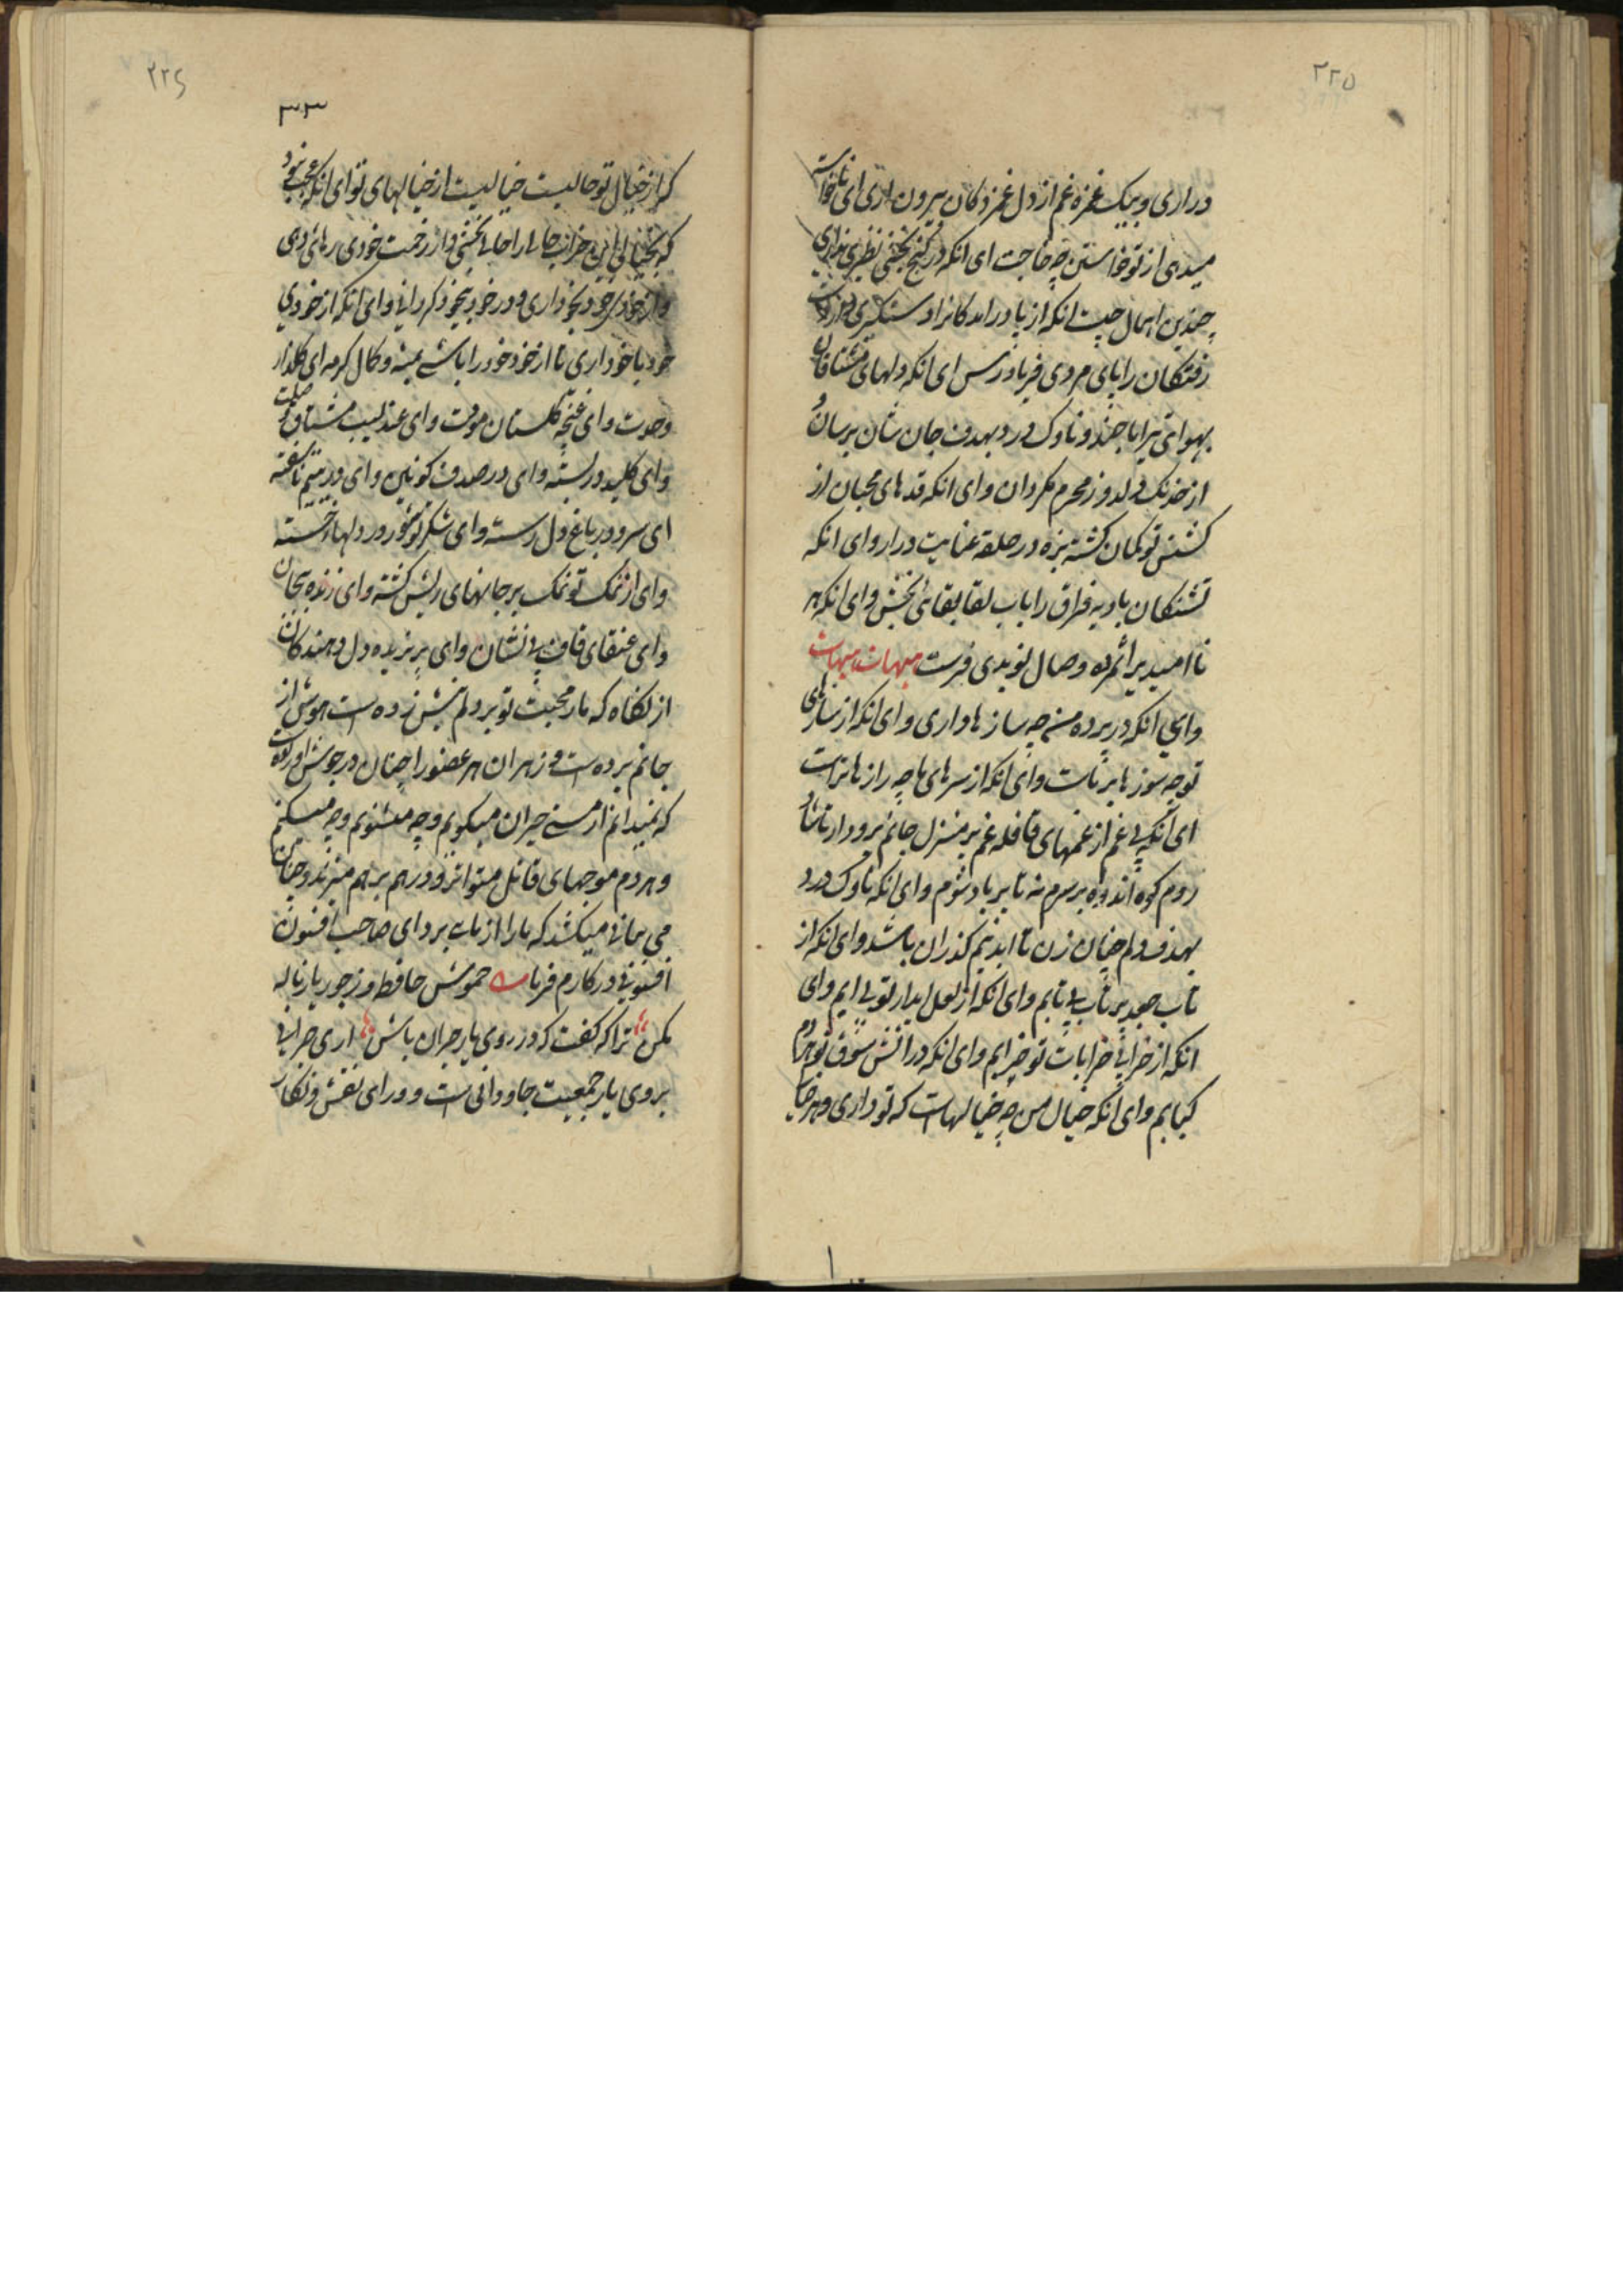 ۲۲۵
در اری و بیک غمزه غم از دل غمزدکان بیرون اری ای ناخواسته
میدی از تو خواستن چه حاجت ای انکه در کنج بخشی نظیری نداری
چندین اهمال چیست انکه از پا در امدکانرا دستکیری
رفتکان را پای مردی فریاد رس ای انکه دلهای مشتاقان
بهوای تیر ناوک درد بهدف جان شان برسان و
از خدنک دلدوز محرم مکردان و ای انکه قدهای محبان از
کشش تو کمان کشته بزه در حلقه عنایت در ار و ای انکه
تشنکان بادیه فراق را باب لقا بقائی بخش و ای انکه هر
نا امید را ثمره وصال نویدی فرست هیهات هیهات
وای انکه در پرده من چه سازها داری و ای انکه از سازهای
تو چه سوزها بر ماست و ای انکه از سرهای ما چه رازها تراست
ای انکه بی غم از غمهای قافله غم بر منزل جانم فرود ار تا شاد
روم کوه اندوه بر سرم نه تا بر باد شوم و ای انکه ناوک درد
بهدف دلم چنان زن تا ابدیم کذران باشد و ای انکه از
تاب جعد پر تاب بی تابم و ای انکه از لعل ابدار تو بی ابم وای
انکه از خرابی خرابات تو خرابم و ای انکه در اتش شوق تو هردم
کبابم و ای انکه خیال من چه خیالهاست که تو داری و هر جا
۲۲۶
۳۰۳
که از خیال تو حالیست خیالیست از خیالهای تو ای انکه عجب نبود
که بخیالی این خراب حالی را حالی بخشی و از زحمت خودی رهائی دهی
و از خود بیخود داری و در خود بیخود کردانی و ای انکه از خودی
خود با خود داری تا از خود خود را باشی بمنه و کمال کرمه ای کلعذار
وحدت و ای غنچه کلستان موقت و ای عندلیب مشتاق
و ای کلید در بسته و ای در صدف کونین و ای در یتیم ناسفته
ای سرو در باغ دل رسته و ای شکر تو شور در دلهاء خسته
و ای از نمک تو نمک بر جانهای ریش کشته و ای زنده بجان
و ای عنقای قاف بی نشان و ای پرنزیده دل دهندکان
از نکاه که مار محبت تو بر دلم نیش زده است هوش از
جانم برده است و زهر ان هر عضو را چنان در جوش اورده
که نمیدانم از مستی حیران میکویم و چه میشنوم و چه میکنم
و هر دم موجهای قاتل متواتر و در هم برهم میزند و چنان
می بمانی میکشد که ما را از تاب برد ای صاحب افسون
افسونی در کارم فرما ﮯ خموش حافظ و از جور یار ناله
مکن ترا که کفت که در روی یار حیران باش اری حیرانی
بروی یار جمعیت جاودانی است و ورای نقش و نکار